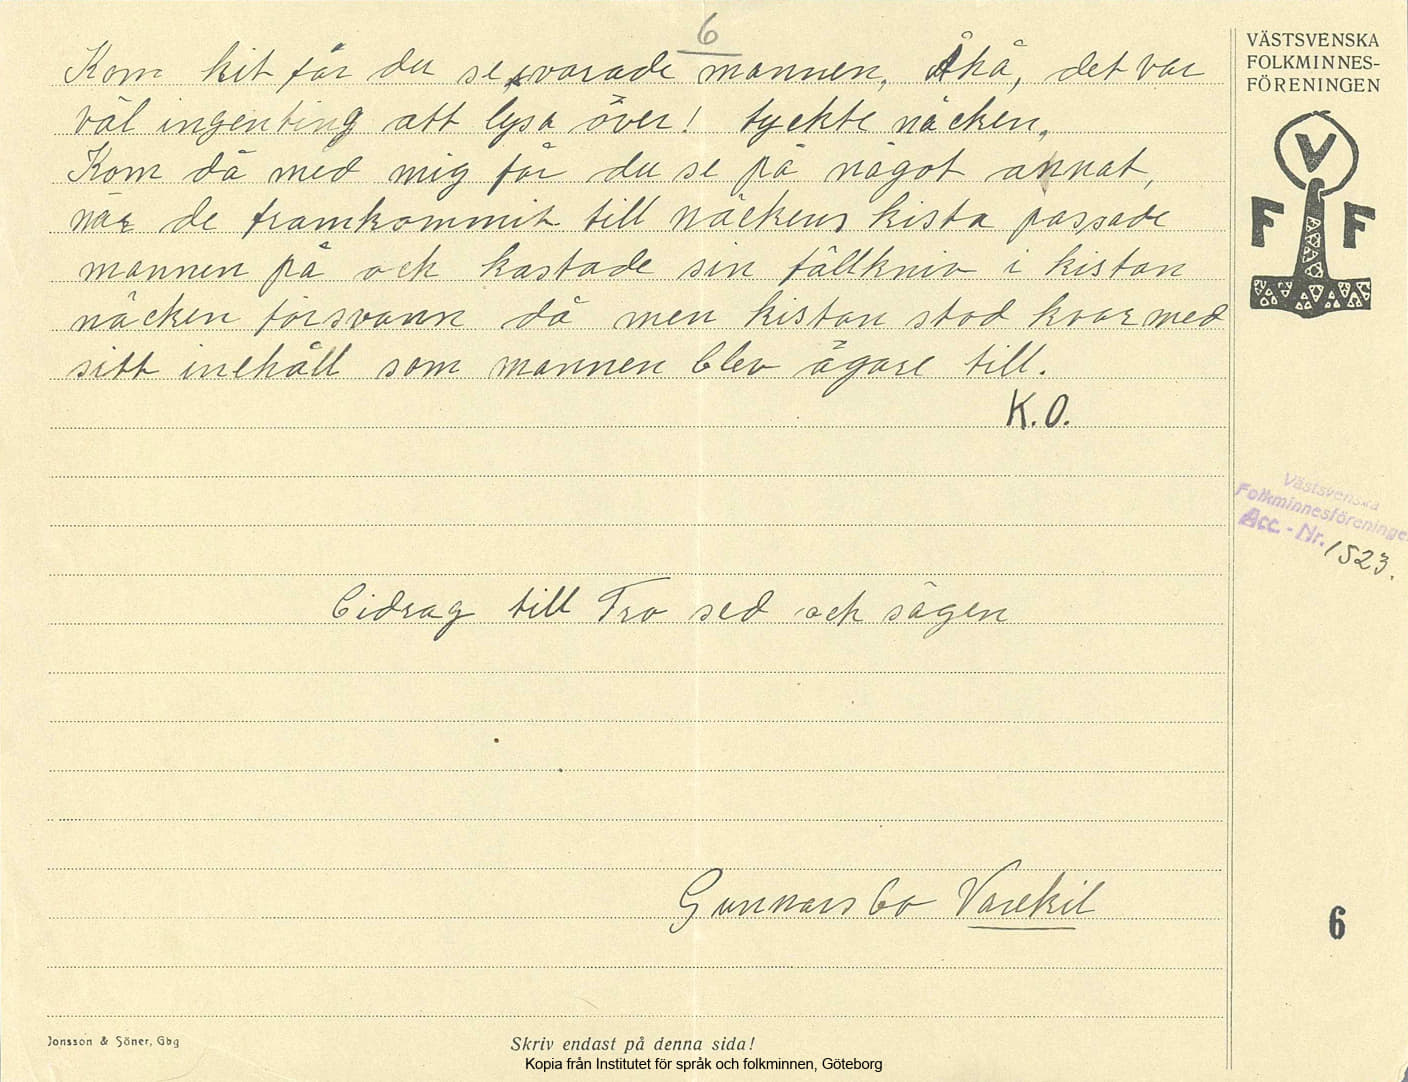 6
Kom hit får du se, svarade mannen. Åhå, det var
väl ingenting att lysa över! tyckte näcken.
Kom då med mig får du se på något annat,
när de framkommit till näckens kista passade
mannen på och kastade sin fällkniv i kistan
näcken försvann då men kistan stod kvar med
sitt inehåll som mannen blev ägare till.
K.O.
bidrag till Tro sed och sägen
Gunnarsbo Varekil
VÄSTSVENSKA
FOLKMINNES-
FÖRENINGEN
V
F F
Västsvenska
Folkminnesföreningen
Acc.-Nr. 1523.
6
Jonsson & Söner, Gbg
Skriv endast på denna sida!
Kopia från Institutet för språk och folkminnen, Göteborg